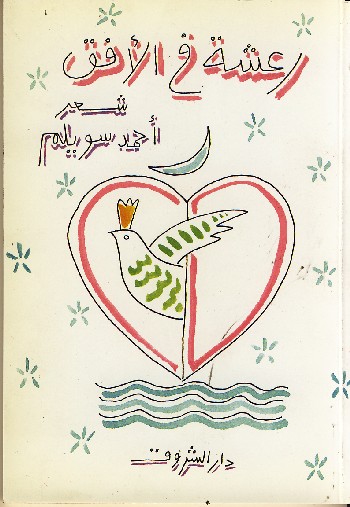 رعشة في الأفق
شعر
أحمد سويلم
دار الشروق